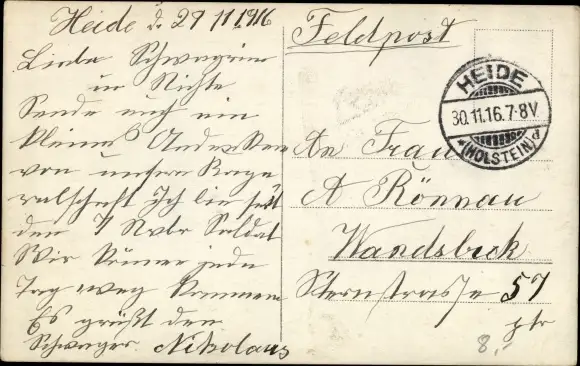 Heide d. 29 11 1916
Liebe Schwägerin
u Nichte
Sende euch ein
kleines Andenken
von unsern Korporalschaft Ich bin seit
den 7 Nvbr Soldat
Wir können jede
Tag weg kommen
Es grüßt dein
Schwager Nikolaus
Feldpost
HEIDE
30.11.16.7-8V
*(HOLSTEIN)d
An Frau
A Rönnau
Wandsbeck
Sternstraße 57
ptr
8,-